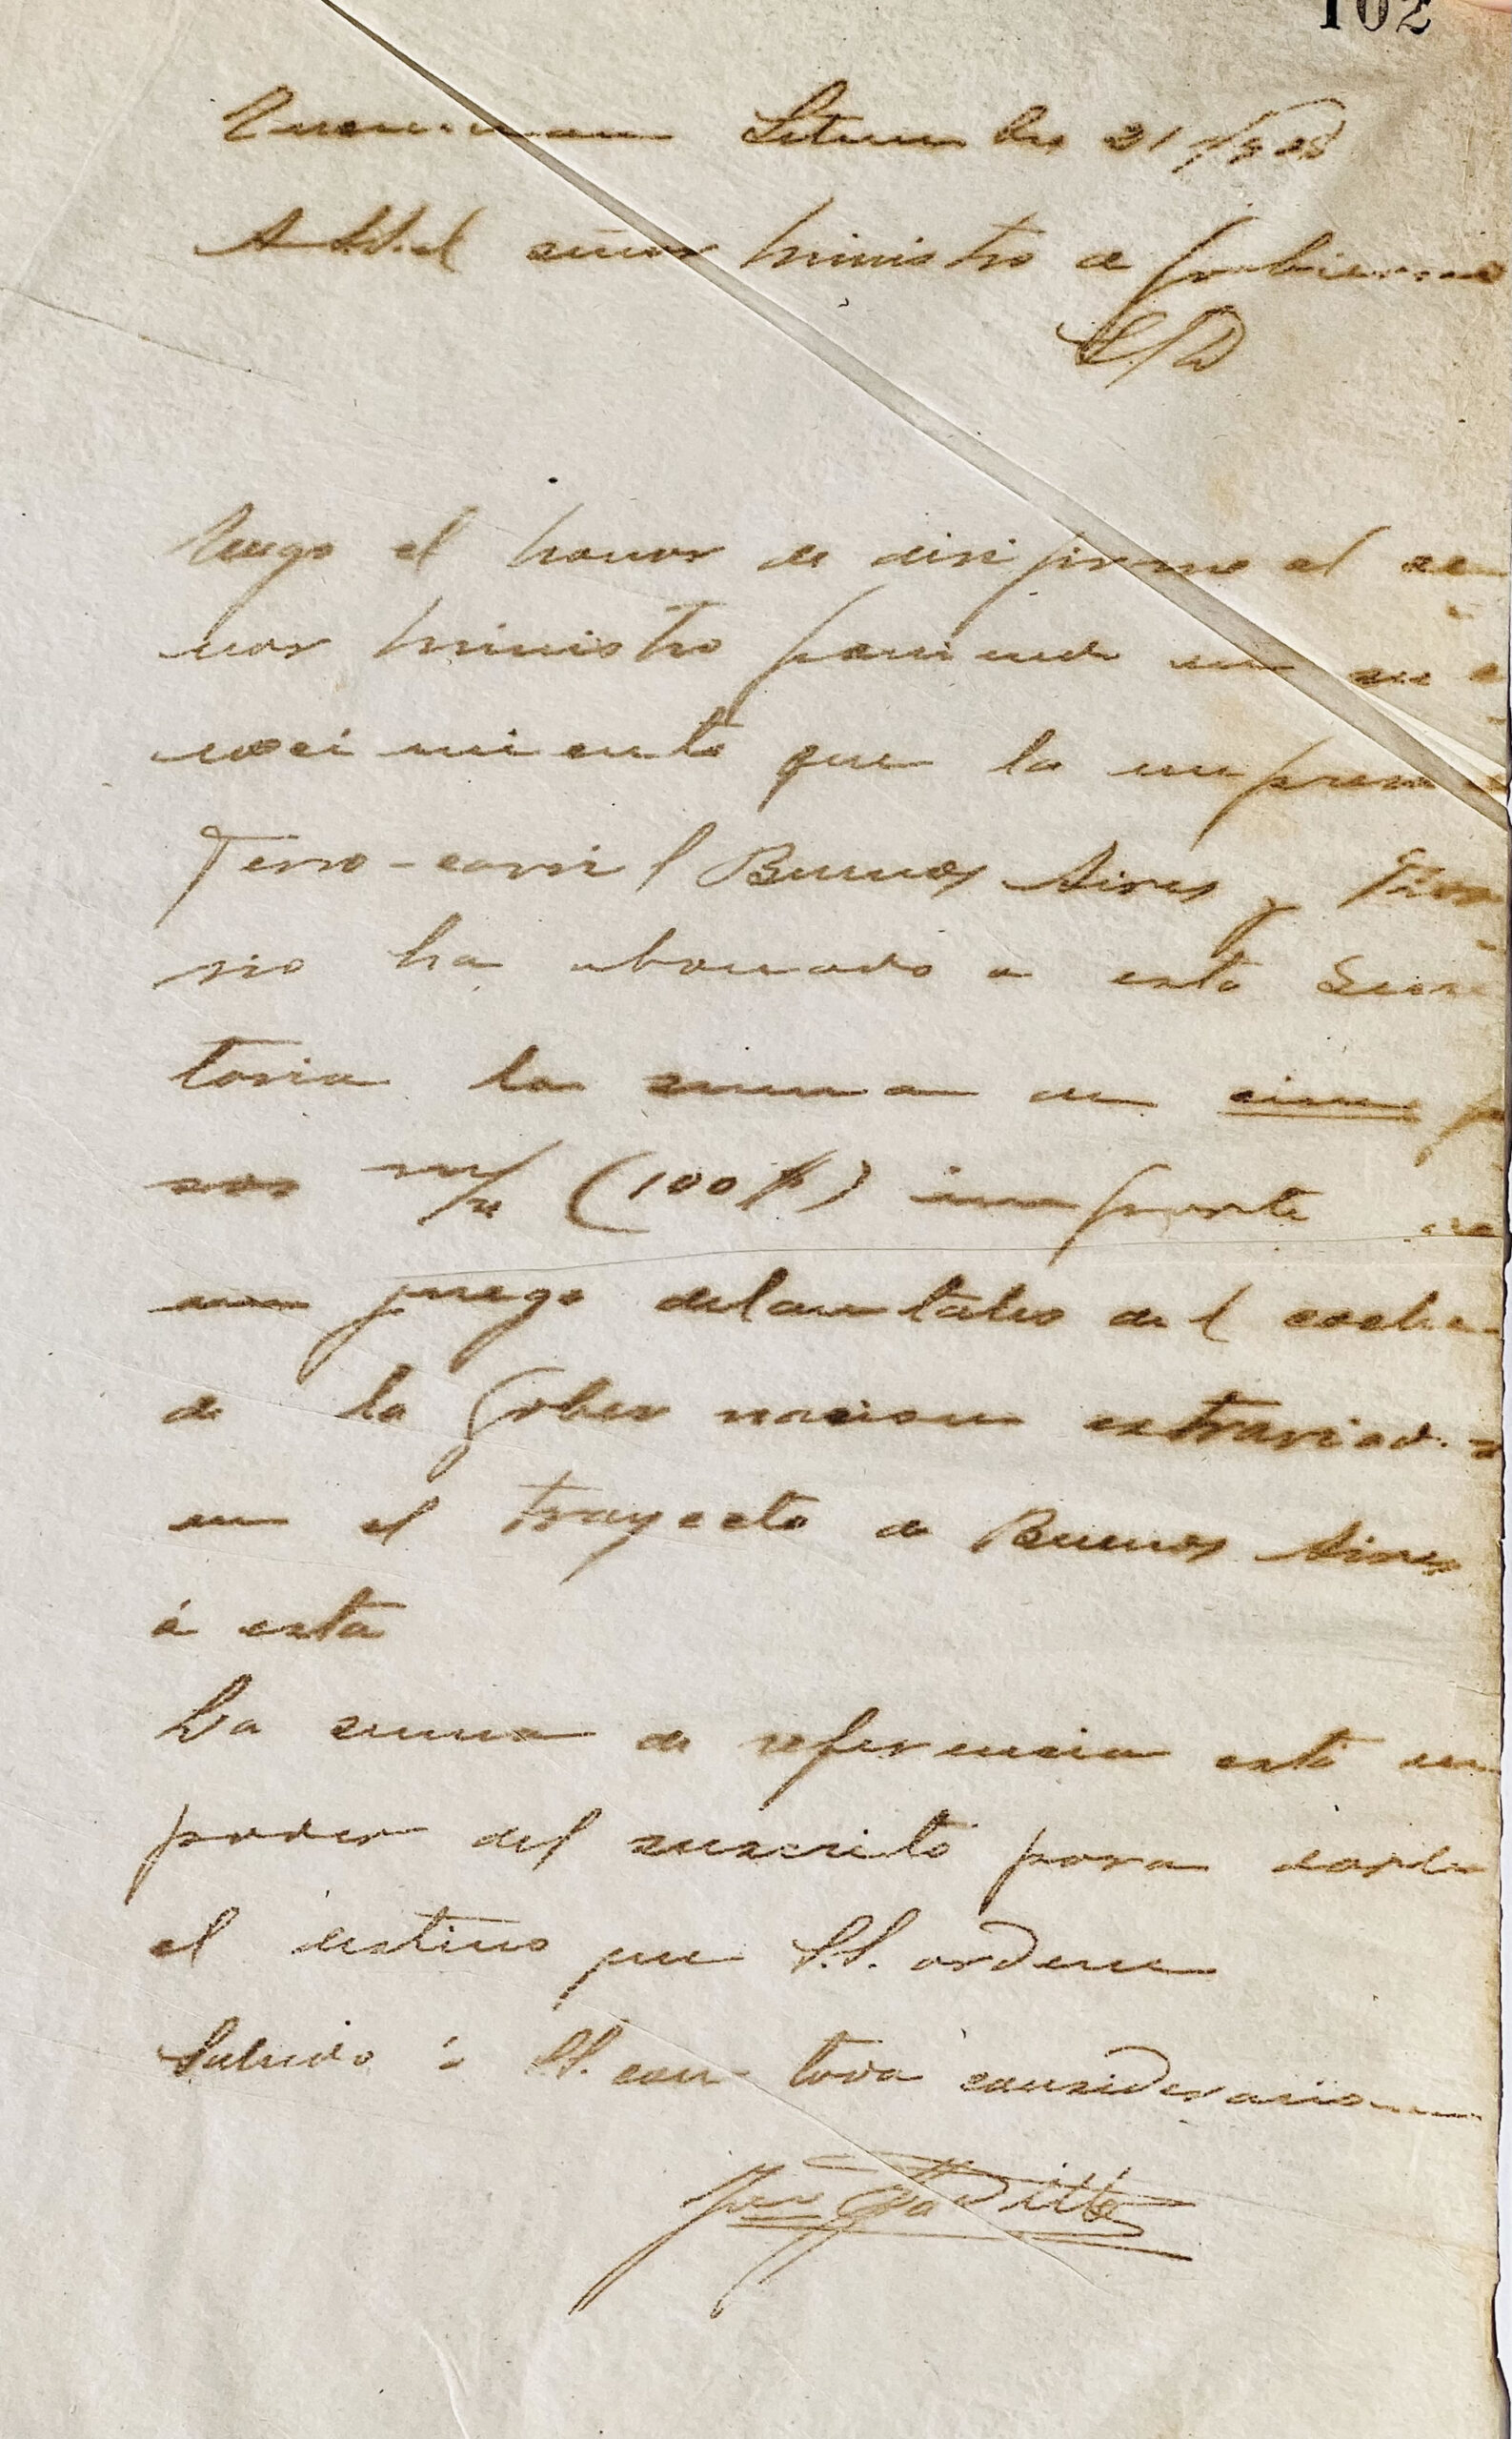 102
Tucuman Setiembre 21/1908
A S.S. el señor Ministro de Gobierno
S/D
Tengo el honor de dirijirme al se
ñor Ministro poniendo en su
nocimiento que la empresa
Ferro-carril Buenos Aires y Rosa
rio ha abonado a esta Secre
taria la suma de cien p
sos m/n (100 $) importe de
un juego delantales del coche
de la Gobernacion extraviado
en el trayecto de Buenos Aires
á esta
La suma de referencia está en
poder del suscrito para darle
el destino que S.S. ordene
Saludo á S.S. con toda consideracion